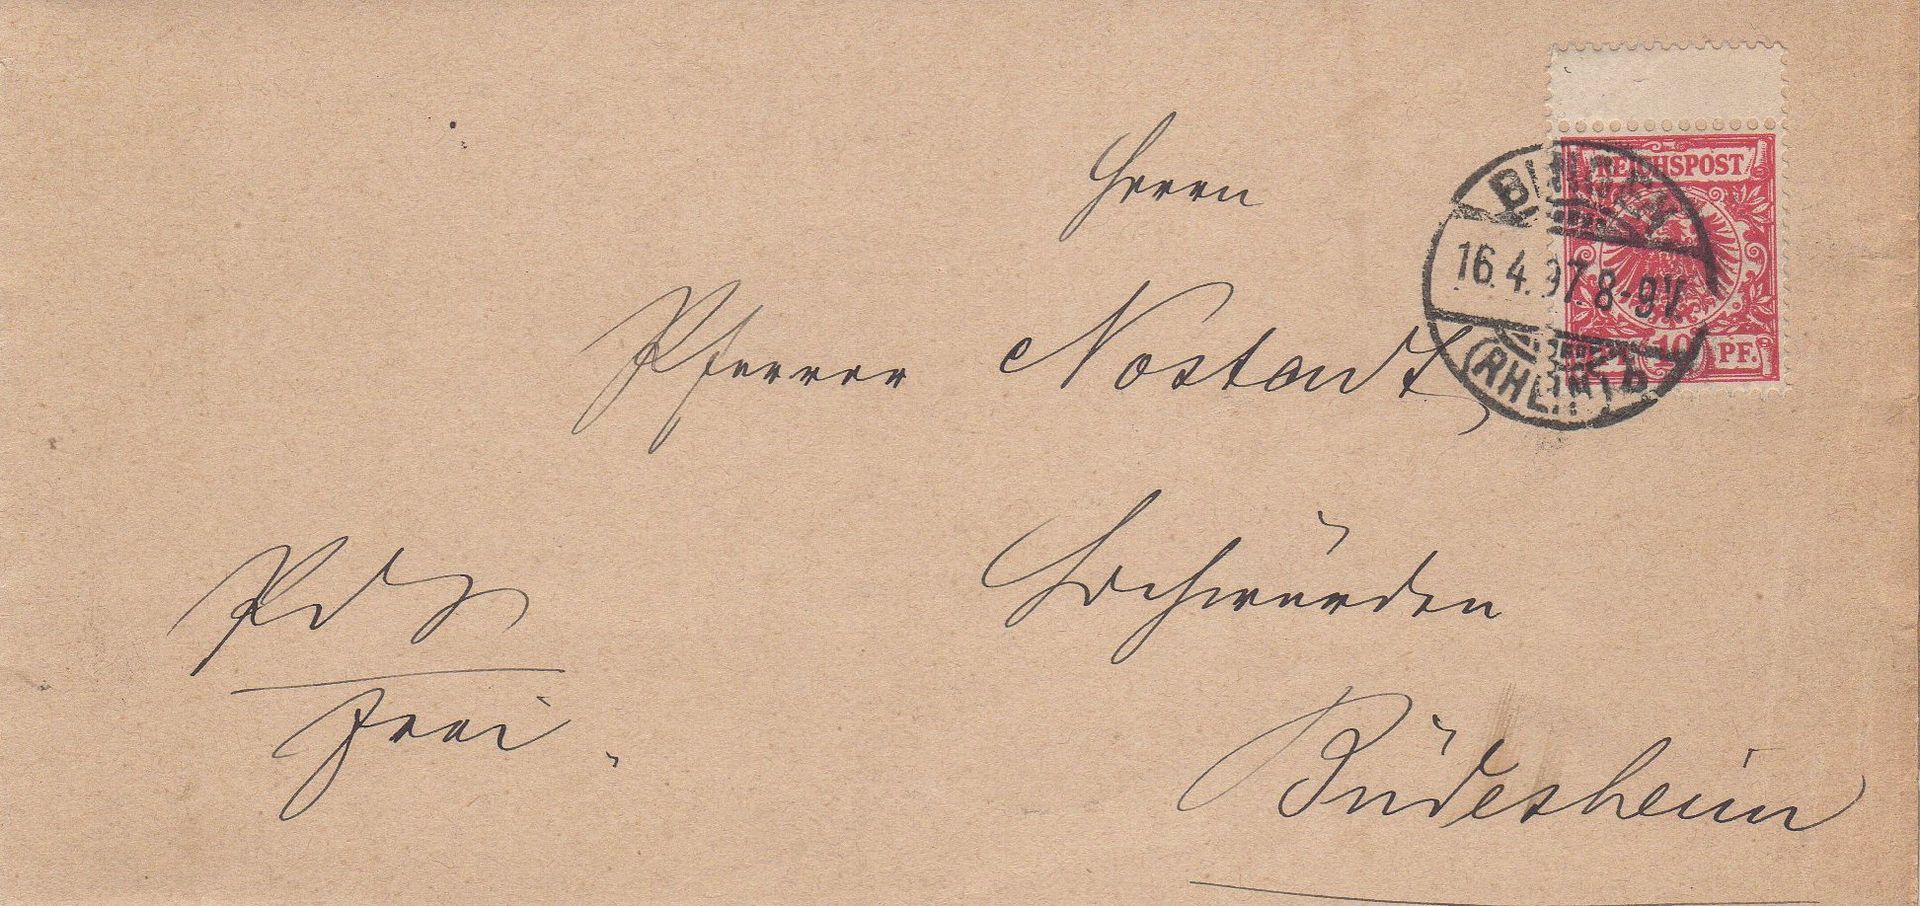 Herrn
REICHSPOST
BINGEN
16.4.97. 8-9V.
(RHEIN) b
10 PF.
Pfarrer Nostadt
Hochwürden
frei
Büdesheim